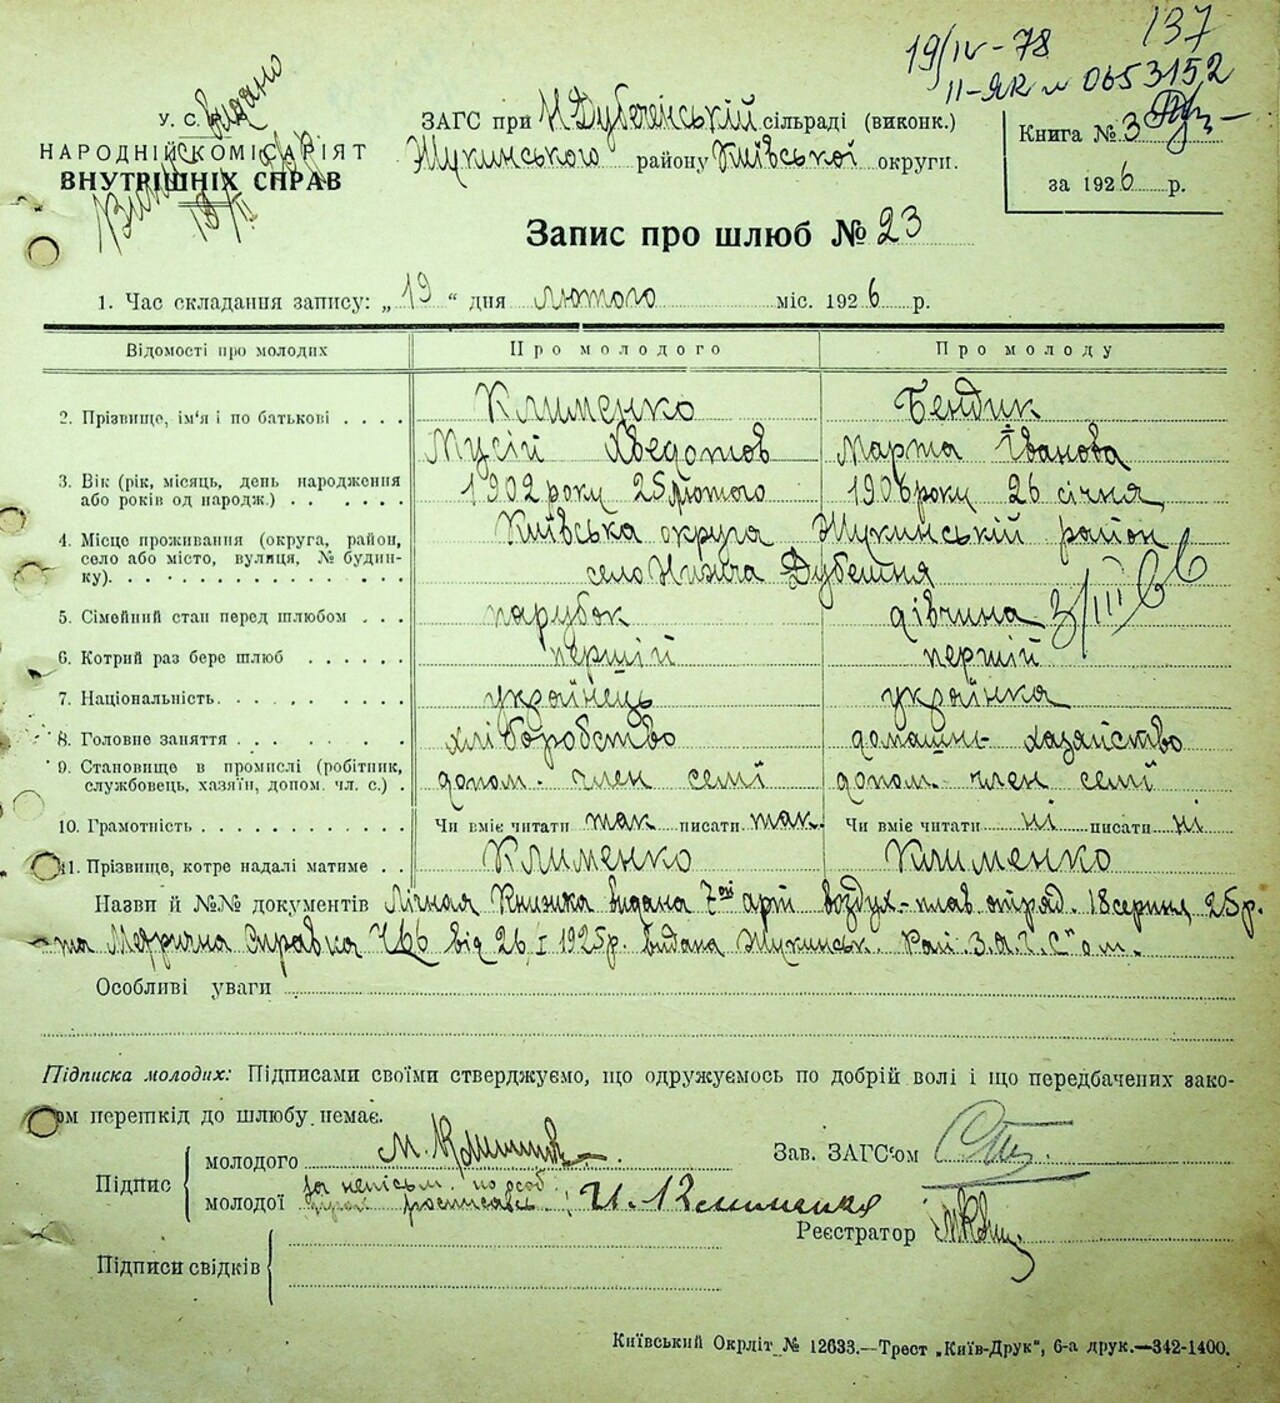 137
19/IV-78
II-ЯК № 0653152
У. С. 
НАРОДНІЙ КОМІСАРІЯТ
ВНУТРІШНІХ СПРАВ
видано
ЗАГС при Н Дубеченській сільраді (виконк.)
Жукинського району Київської округи.
Книга № 3
за 1926 р.
Запис про шлюб № 23
1. Час складання запису: „19“ дня лютого міс. 1926 р.
Відомості про молодих Про молодого Про молоду
2. Прізвище, ім'я і по батькові . . . . Клименко Бендик
Мусій Хведотов Марта Іванова
3. Вік (рік, місяць, день народження або років од народж.) . . . . . . 1902 року 25 лютого 1906 року 26 січня
4. Місце проживання (округа, район, село або місто, вулиця, № будинку). Київська округа Жукинській район
село Нижча Дубешня
5. Сімейний стан перед шлюбом . . . парубок дівчина 3/III 66
6. Котрий раз бере шлюб . . . . . . першій першій
7. Національність. . . . . . . . українець українка
8. Головне заняття . . . . . . . хліборобство домашн- хазяйство
9. Становище в промислі (робітник, службовець, хазяїн, допом. чл. с.) . допом. член семї допом. член семї
10. Грамотність . . . . . . . . . . Чи вміє читати так писати так. Чи вміє читати ні писати ні
11. Прізвище, котре надалі матиме . . Клименко Клименко
Назви й №№ документів Лічная Книжка видана 7ої арт воздух-плав. отряд. 18 серпня 25р.
та Метрична Справка від 26/I 1925р. видана Жукинськ. З.А.Г.С"ом.
Особливі уваги
Підписка молодих: Підписами своїми стверджуємо, що одружуємось по добрій волі і що передбачених зако-
ом перешкід до шлюбу немає.
Підпис
молодого М. Клименко
молодої за неписьм. по особ.
розписавсь: И. Клименко
Зав. ЗАГС'ом
Реєстратор
Підписи свідків
Київський Окрліт № 12633.—Трест „Київ-Друк“, 6-а друк.—342-1400.